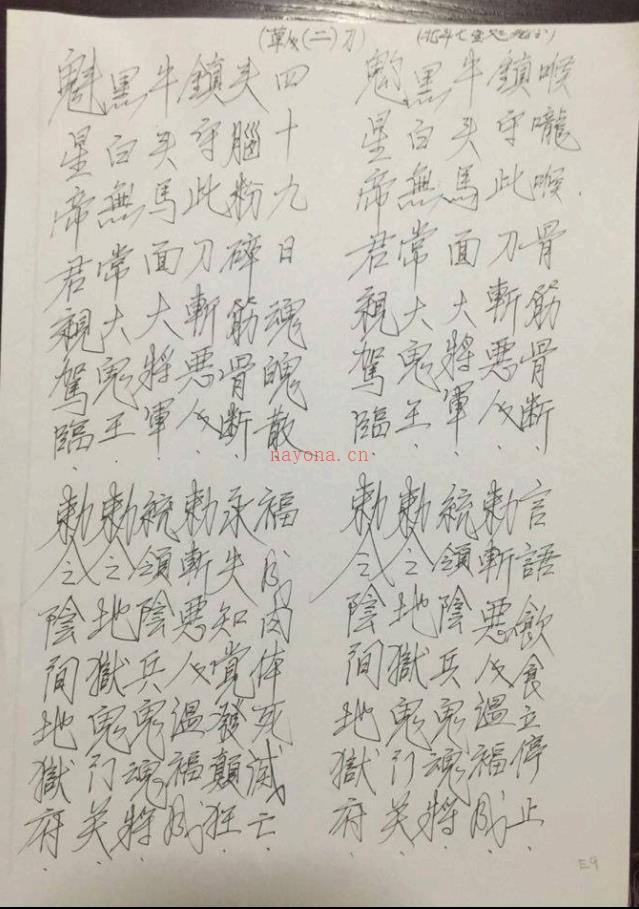 (二)刀
魁星帝君親駕臨
勅令陰間地獄府
黑白無常大鬼王
勅令地獄鬼门关
牛头馬面大將軍
統領陰兵鬼魂將
鎮守此刀斬惡人
勅斬惡人温福成
头腦粉碎筋骨断
永失知覚發顛狂
四十九日魂魄散
福成肉体死滅亡
魁星帝君親駕臨
勅令陰間地獄府
黑白無常大鬼王
勅令地獄鬼门关
牛头馬面大將軍
統領陰兵鬼魂將
鎮守此刀斬惡人
勅斬惡人温福成
喉嚨喉骨筋骨断
言語飲食立停止
nayona.cn
E9